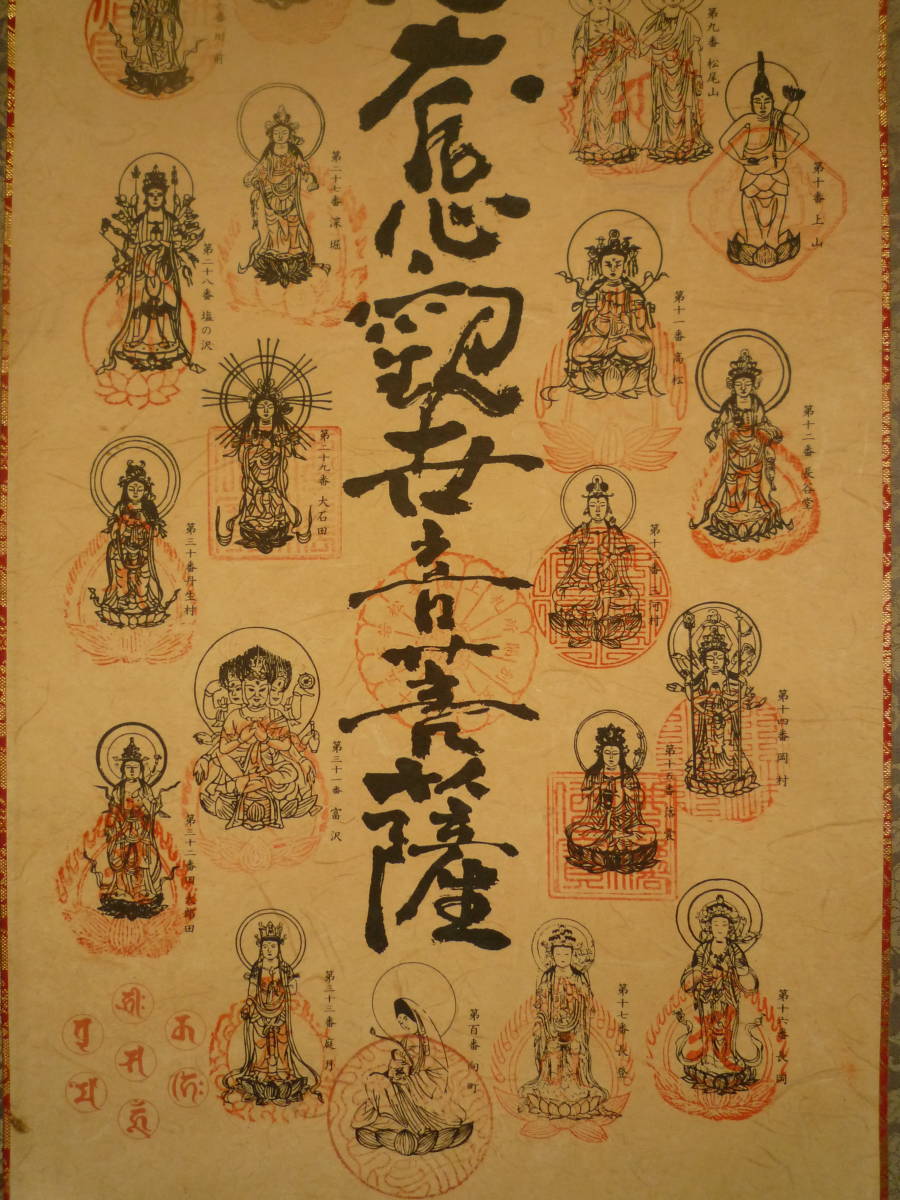 大慈觀世音菩薩
第九番 松尾山
第十番 上山
第十一番 高松
第十二番 長谷堂
第十三番 三河村
第十四番 岡村
第十六番 長岡
第十七番 長登
第二十七番 深堀
第二十八番 塩の沢
第二十九番 大石田
第三十番 丹生村
第三十一番 富沢
第三十二番
第三十三番 庭月
第百番 向町